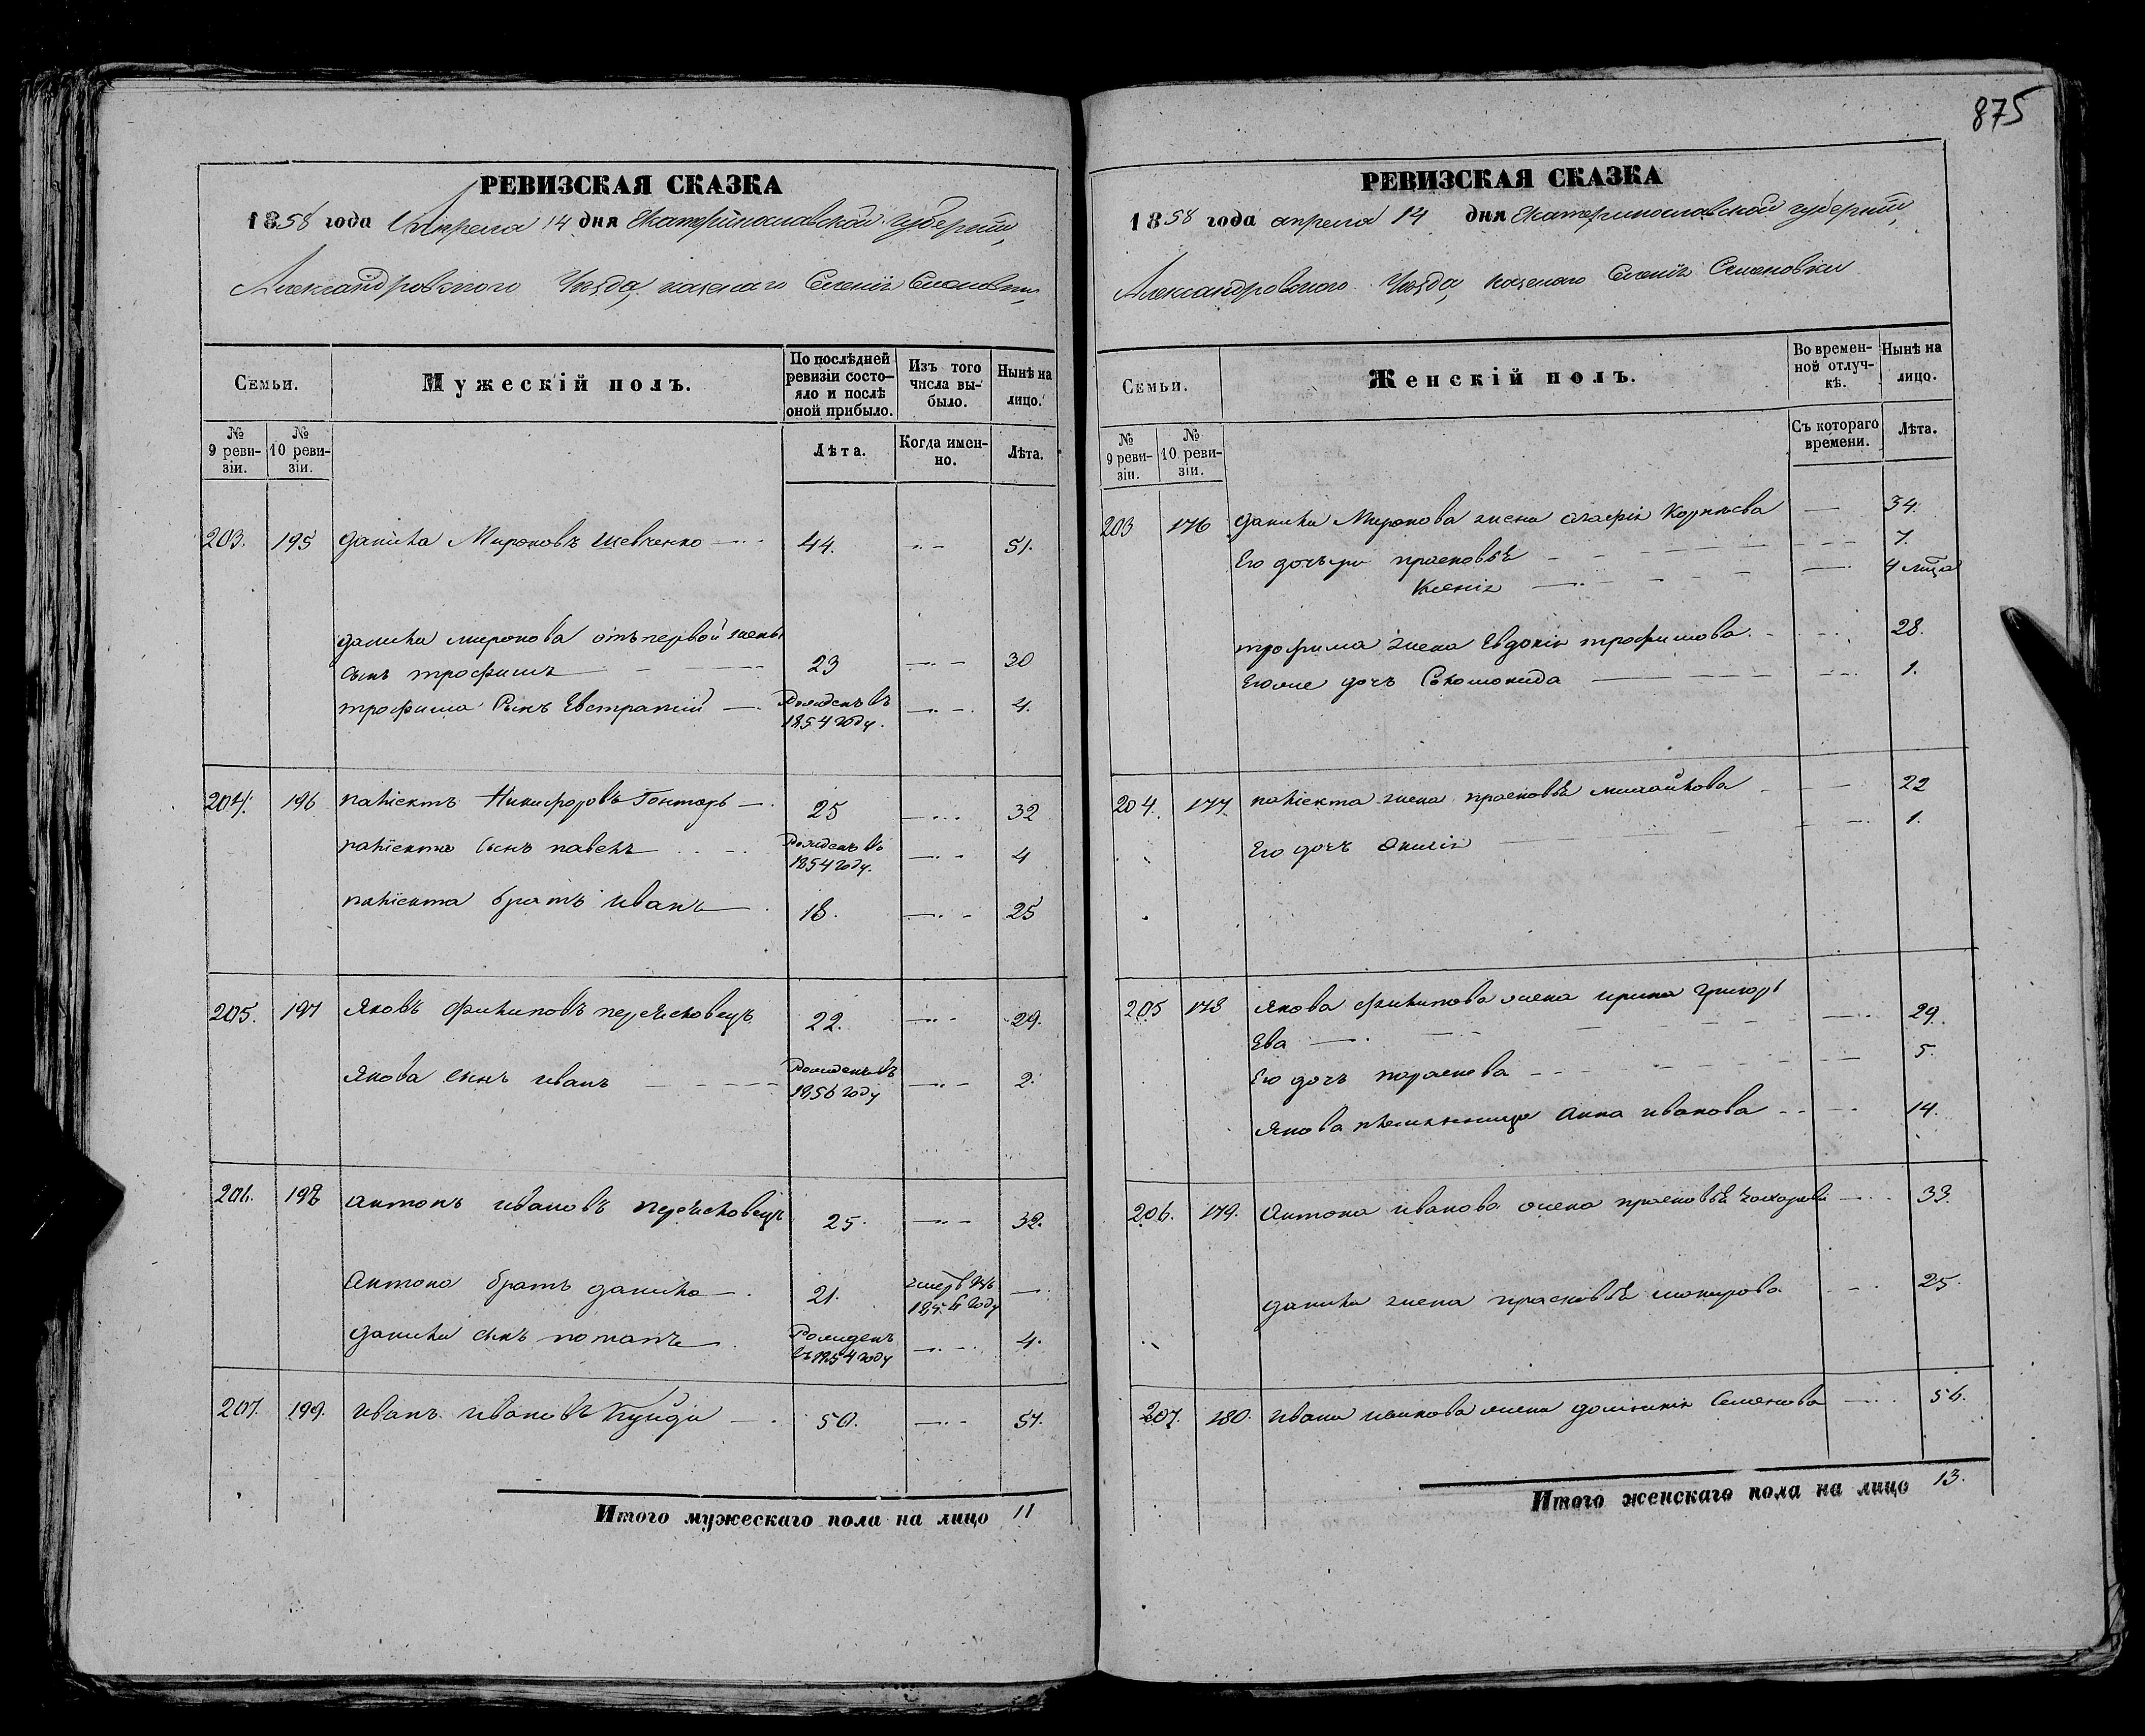 875
РЕВИЗСКАЯ СКАЗКА
1858 года Апреля 14 дня Екатеринославской губернии,
Александровского Уезда, казенаго Селенія Семеновки,
Семьи.
Мужескій полъ.
По послѣдней ревизіи состо-
яло и послѣ
оной прибыло.
Изъ того
числа вы-
было.
Нынѣ на
лицо.
№
9 реви-
зіи.
№
10 реви-
зіи.
Лѣта.
Когда имен-
но.
Лѣта.
203. 195 Данила Мироновъ Шевченко 44. 51.
Данила миронова отъ первой жены
сынъ трофимъ 23 30
трофима Сынъ Евстратий Рожденъ въ 1854 году. 4.
204. 196 Никифоровъ 25 32
сынъ павелъ Рожденъ въ 1854 году. 4
братъ иванъ 18. 25
205. 197 Яковъ филиповъ 22. 29.
Якова сынъ иванъ Рожденъ въ 1856 году 2.
206. 198 Антонъ ивановъ 25. 32.
Антона братъ данила 21. году
данилы сынъ потапъ Рожденъ въ 1854 году 4.
207. 199. иванъ ивановъ 50. 57.
Итого мужескаго пола на лицо 11
РЕВИЗСКАЯ СКАЗКА
1858 года апреля 14 дня Екатеринославской губернии,
Александровского Уезда, казенаго Селенія Семеновки
Семьи.
Женскій полъ.
Во времен-
ной отлуч-
кѣ.
Нынѣ на
лицо.
№
9 реви-
зіи.
№
10 реви-
зіи.
Съ котораго
времени.
Лѣта.
203 176 Данилы Миронова жена 34.
Его дочери прасковья 7.
Ксенія 4
трофима жена Евдокія трофимова. 28.
Его же дочь 1.
204. 177. жена прасковья михайлова 22
Его дочь 1.
205 178 Якова филипова жена ирина григорь
Ева 29.
Его дочь параскева 5.
Якова племянница Анна иванова 14.
206. 179. Антона иванова жена прасковья захарова 33.
данилы жена прасковья 25.
207. 180. ивана иванова жена Семенова 56.
Итого женскаго пола на лицо 13.